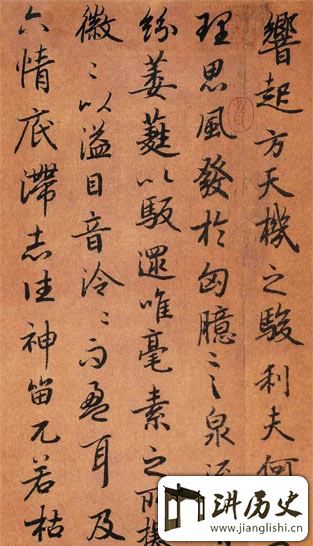 響起方天機之駿利夫何
理思風發於匈臆言泉流
紛萎蕤以馺遝唯毫素之所擬
徽〻以溢目音泠〻而盈耳及
六情底滯志往神留兀若枯
讲历史
www.jianglishi.cn